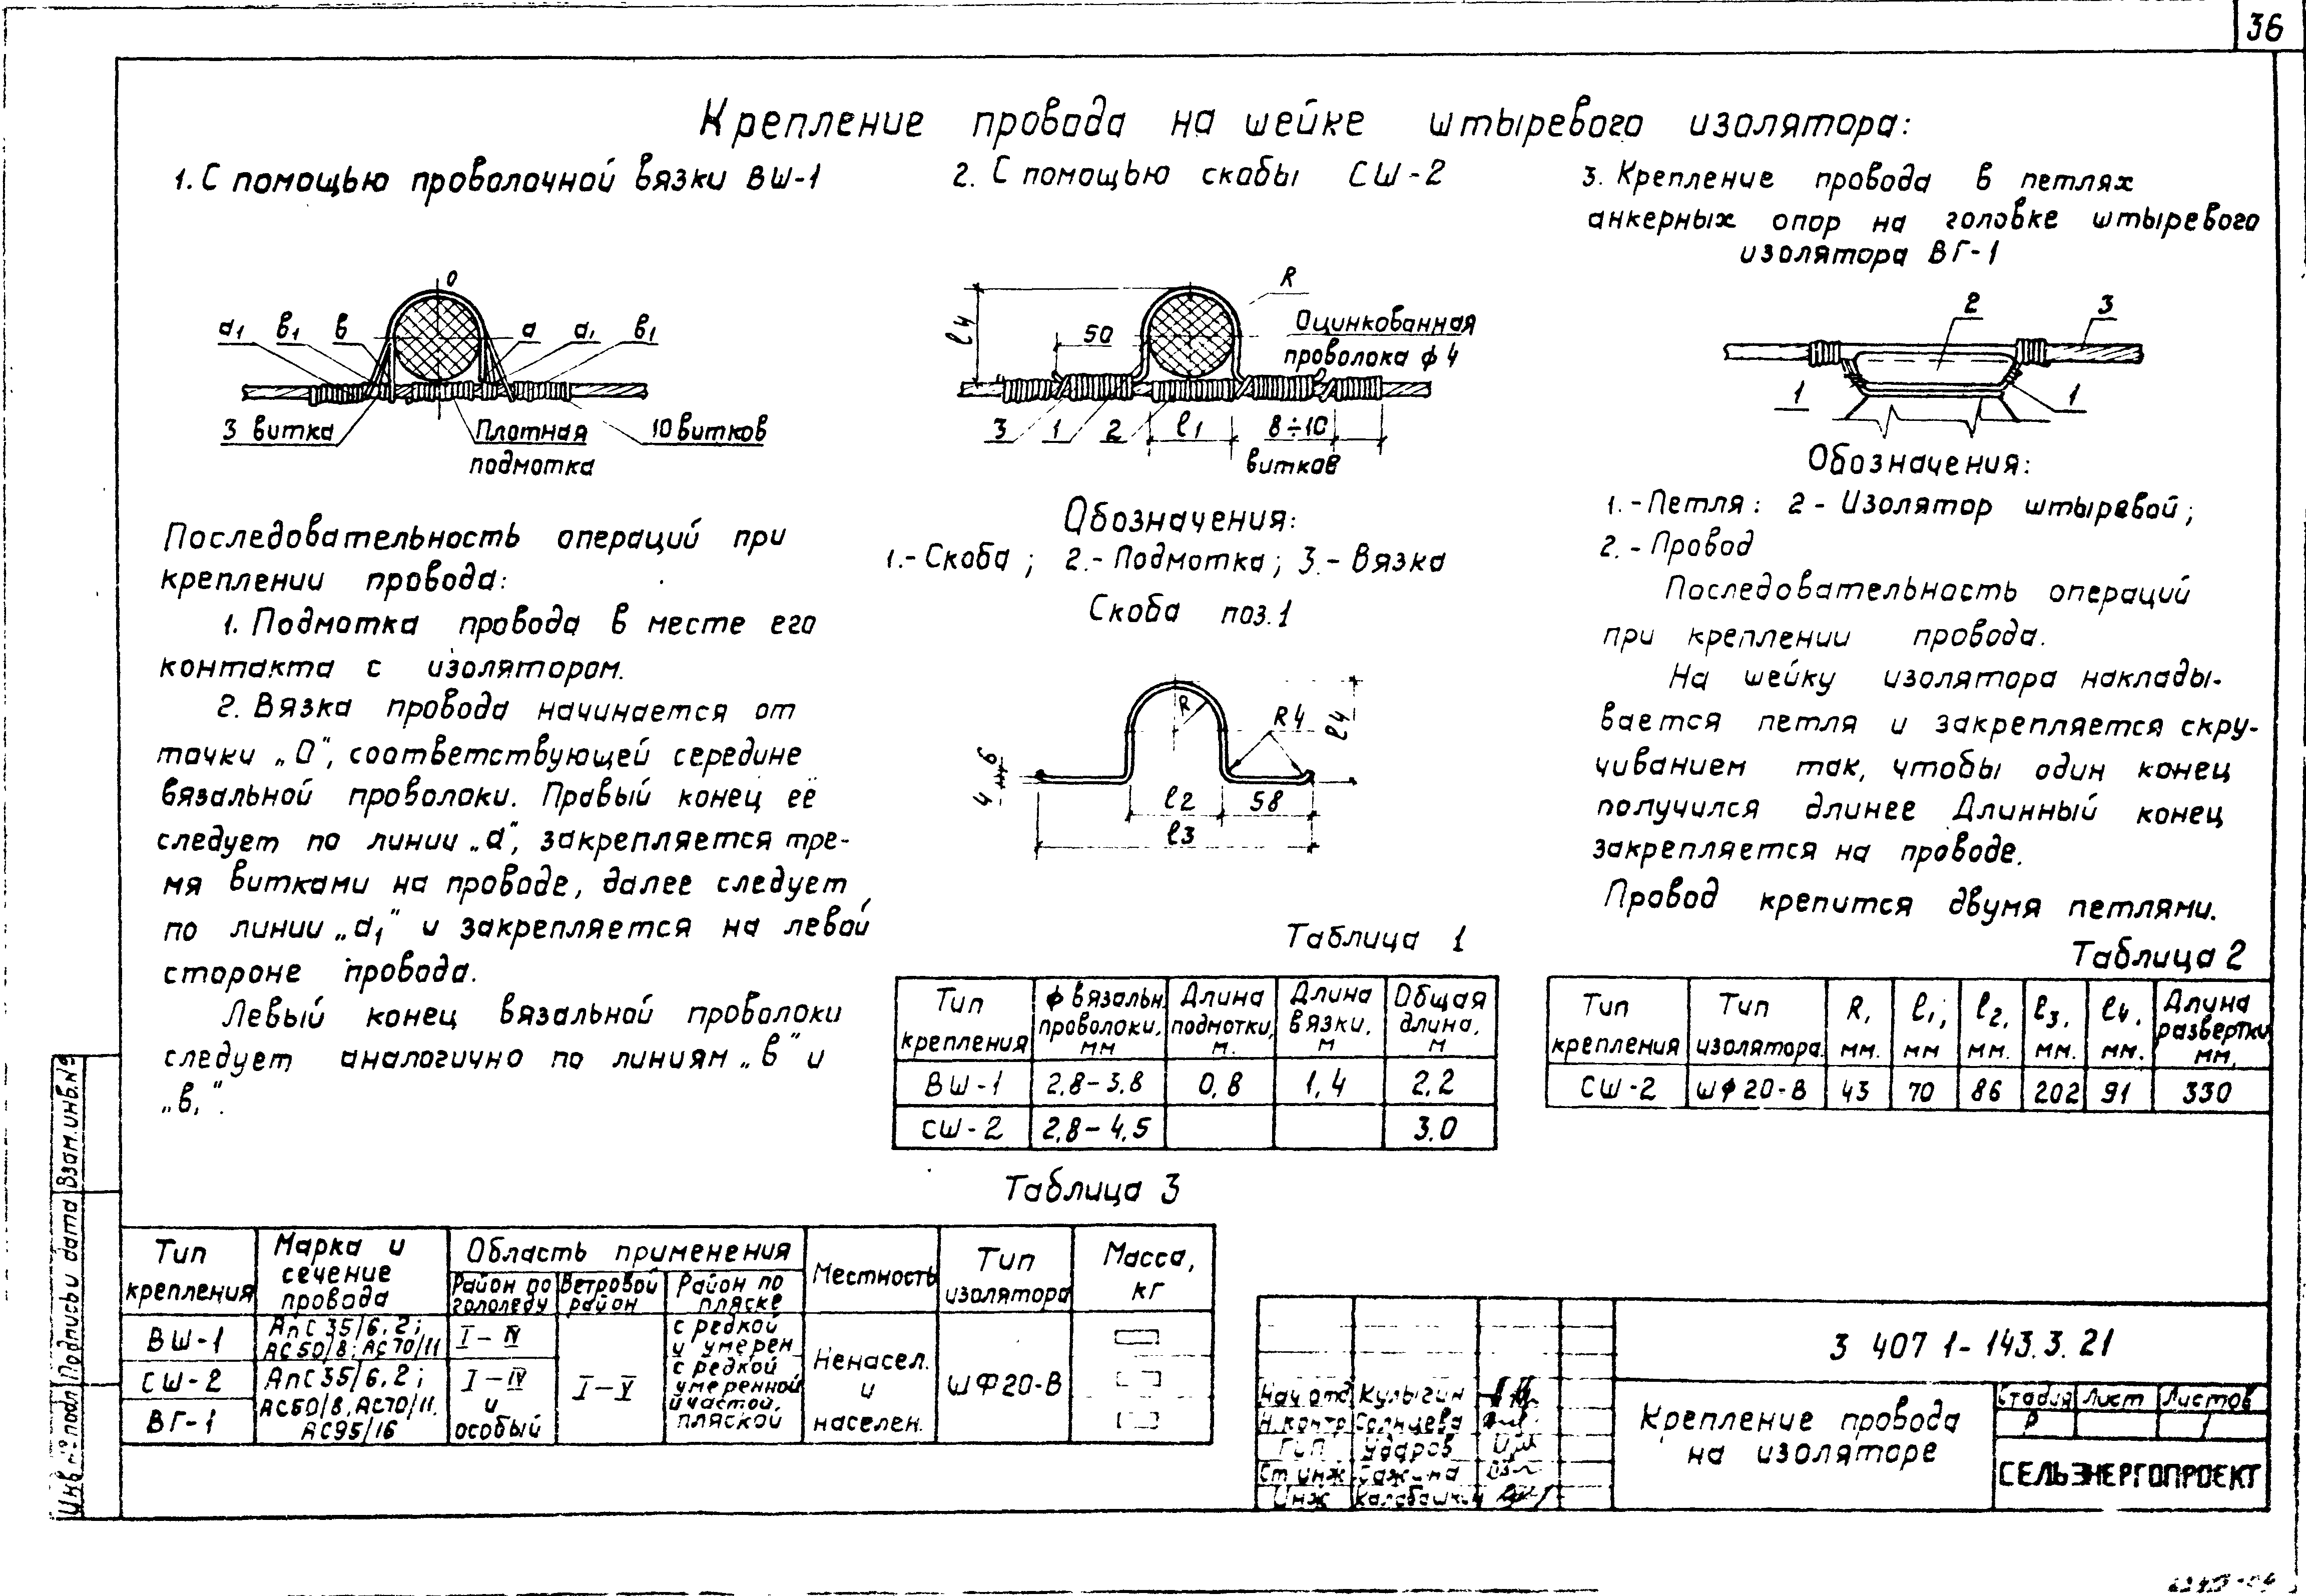 36
Крепление провода на шейке штыревого изолятора:
1. С помощью проволочной вязки ВШ-1
О
а₁ в₁ в а а₁ в₁
3 витка
Плотная
подмотка
10 витков
Последовательность операций при
креплении провода:
1. Подмотка провода в месте его
контакта с изолятором.
2. Вязка провода начинается от
точки „О", соответствующей середине
вязальной проволоки. Правый конец её
следует по линии „а", закрепляется тре-
мя витками на проводе, далее следует
по линии „а₁" и закрепляется на левой
стороне провода.
Левый конец вязальной проволоки
следует аналогично по линиям „в" и
„в₁".
2. С помощью скобы СШ-2
R
ℓ4
50
Оцинкованная
проволока ф 4
3 1 2 ℓ1 8÷10
витков
Обозначения:
1.- Скоба; 2.- Подмотка; 3.- Вязка
Скоба поз. 1
R R4 ℓ4
6
4
ℓ2 58
ℓ3
3. Крепление провода в петлях
анкерных опор на головке штыревого
изолятора ВГ-1
2 3
1 1
Обозначения:
1.- Петля: 2- Изолятор штыревой;
2.- Провод
Последовательность операций
при креплении провода.
На шейку изолятора наклады-
вается петля и закрепляется скру-
чиванием так, чтобы один конец
получился длинее Длинный конец
закрепляется на проводе.
Провод крепится двумя петлями.
Таблица 1
Тип крепления ф вязальн. проволоки, мм Длина подмотки, м. Длина вязки, м Общая длина, м
ВШ-1 2,8-3,8 0,8 1,4 2,2
СШ-2 2,8-4,5 3,0
Таблица 2
Тип крепления Тип изолятора. R, мм. ℓ1, мм ℓ2, мм. ℓ3, мм. ℓ4, мм. Длина развертки мм,
СШ-2 ШФ20-В 43 70 86 202 91 330
Таблица 3
Тип крепления Марка и сечение провода Область применения Местность Тип изолятора Масса, кг
Район по гололеду Ветровой район Район по пляске
ВШ-1 АпС 35/6,2; АС50/8; АС70/11 I-IV с редкой и умерен
СШ-2 АпС35/6,2; I-IV I-V с редкой умеренной Ненасел. и населен. ШФ20-В
ВГ-1 АС50/8, АС70/11, АС95/16 и особый и частой, пляской
Взам. инв. №
Подпись и дата
Инв № подл
3 407 1-143.3.21
Крепление провода
на изоляторе
Стадия Лист Листов
Р 1
СЕЛЬЭНЕРГОПРОЕКТ
Нач отд Кулыгин
Н. контр Солнцева
ГИП Ударов
Ст инж Сажина
Инж Калабашкин